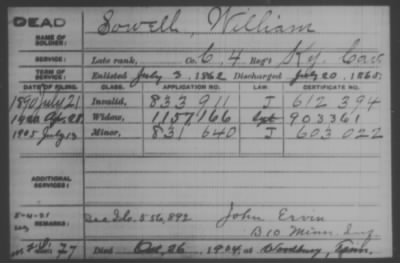 DEAD
NAME OF SOLDIER: Sowell, William
SERVICE: Late rank, Co. C, 4 Reg't Ky. Cav
TERM OF SERVICE: Enlisted July 3, 1862 Discharged July 20, 1865
DATE OF FILING. CLASS. APPLICATION NO. LAW. CERTIFICATE NO.
1890 July 21 Invalid, 833 911 J 612 394
Apr. 28 Widow, 1157,166 903361
1905 July 13 Minor, 831 640 J 603 022
ADDITIONAL SERVICES:
5-4-21
REMARKS: 556,892 John Ervin
B 10 Minn. Inf.
77 Died Oct. 26, 1904, at Woodbury, Tenn.